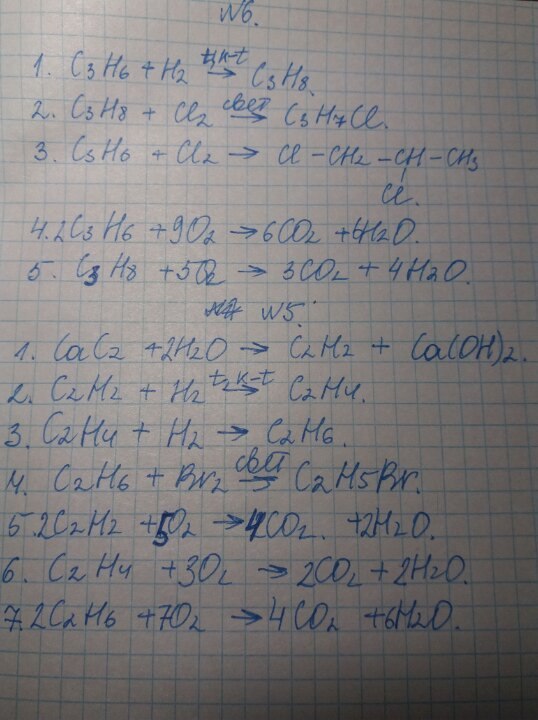 N6.
1. C3H6 + H2 t,к-т → C3H8.
2. C3H8 + Cl2 свет → C3H7Cl.
3. C3H6 + Cl2 → Cl – CH2 – CH – CH3
Cl.
4. 2C3H6 + 9O2 → 6CO2 + 6H2O.
5. C3H8 + 5O2 → 3CO2 + 4H2O.
N5.
1. CaC2 + 2H2O → C2H2 + Ca(OH)2.
2. C2H2 + H2 t,к-т → C2H4.
3. C2H4 + H2 → C2H6.
4. C2H6 + Br2 свет → C2H5Br.
5. 2C2H2 + 5O2 → 4CO2. + 2H2O.
6. C2H4 + 3O2 → 2CO2 + 2H2O.
7. 2C2H6 + 7O2 → 4CO2 + 6H2O.